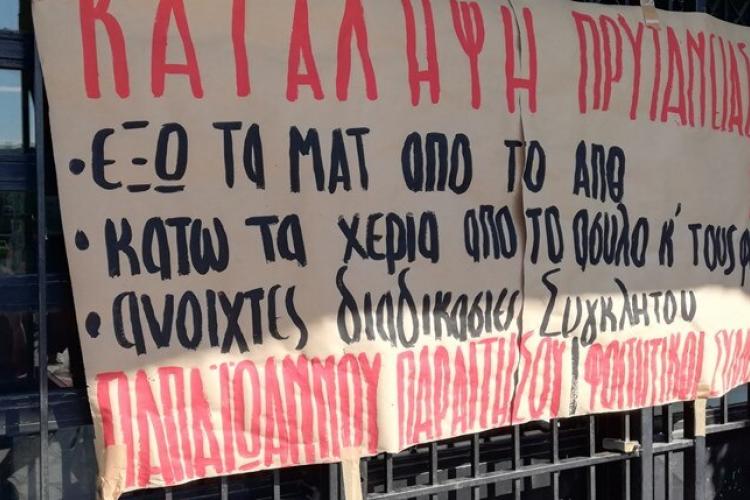 ΚΑΤΑΛΗΨΗ ΠΡΥΤΑΝΕΙΑΣ
• ΕΞΩ ΤΑ ΜΑΤ ΑΠΟ ΤΟ ΑΠΘ
• ΚΑΤΩ ΤΑ ΧΕΡΙΑ ΑΠΟ ΤΟ ΑΣΥΛΟ Κ' ΤΟΥΣ
• ΑΝΟΙΧΤΕΣ ΔΙΑΔΙΚΑΣΙΕΣ ΣΥΓΚΛΗΤΟΥ
ΠΑΠΑΪΩΑΝΝΟΥ ΠΑΡΑΙΤΗΣΟΥ! ΦΟΙΤΗΤΙΚΟΙ